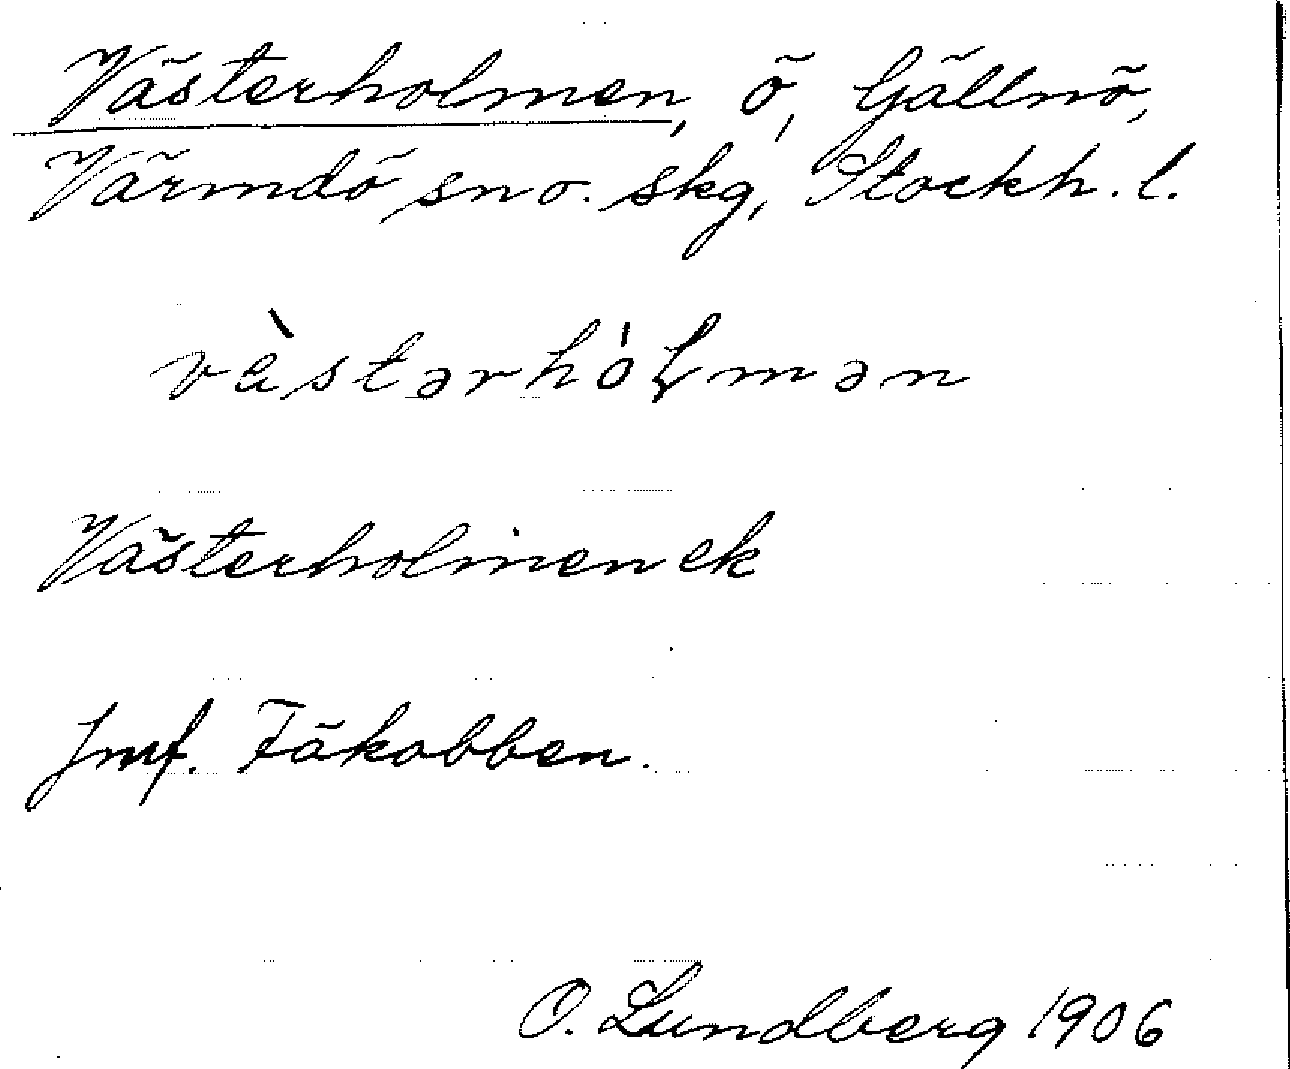 Västerholmen, ö, Gällnö,
Värmdö sn o. skg, Stockh. l.
vàstərhól̥mən
Västerholmen ek
Jmf. Fåkobben.
O. Lundberg 1906